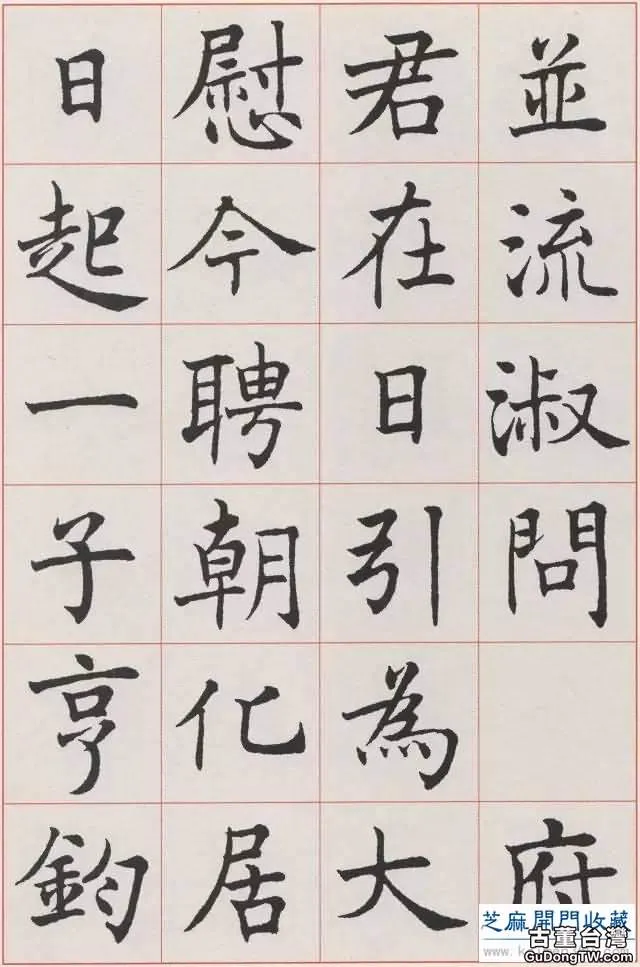 並流淑問 府
君在日引為大
慰今聘朝化居
日起一子亨鈞
芝麻開門收藏
古董台灣
GuDongTW.com